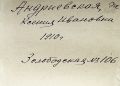 Андриевская,
Ксения Ивановна
1910 г
Слободская № 106